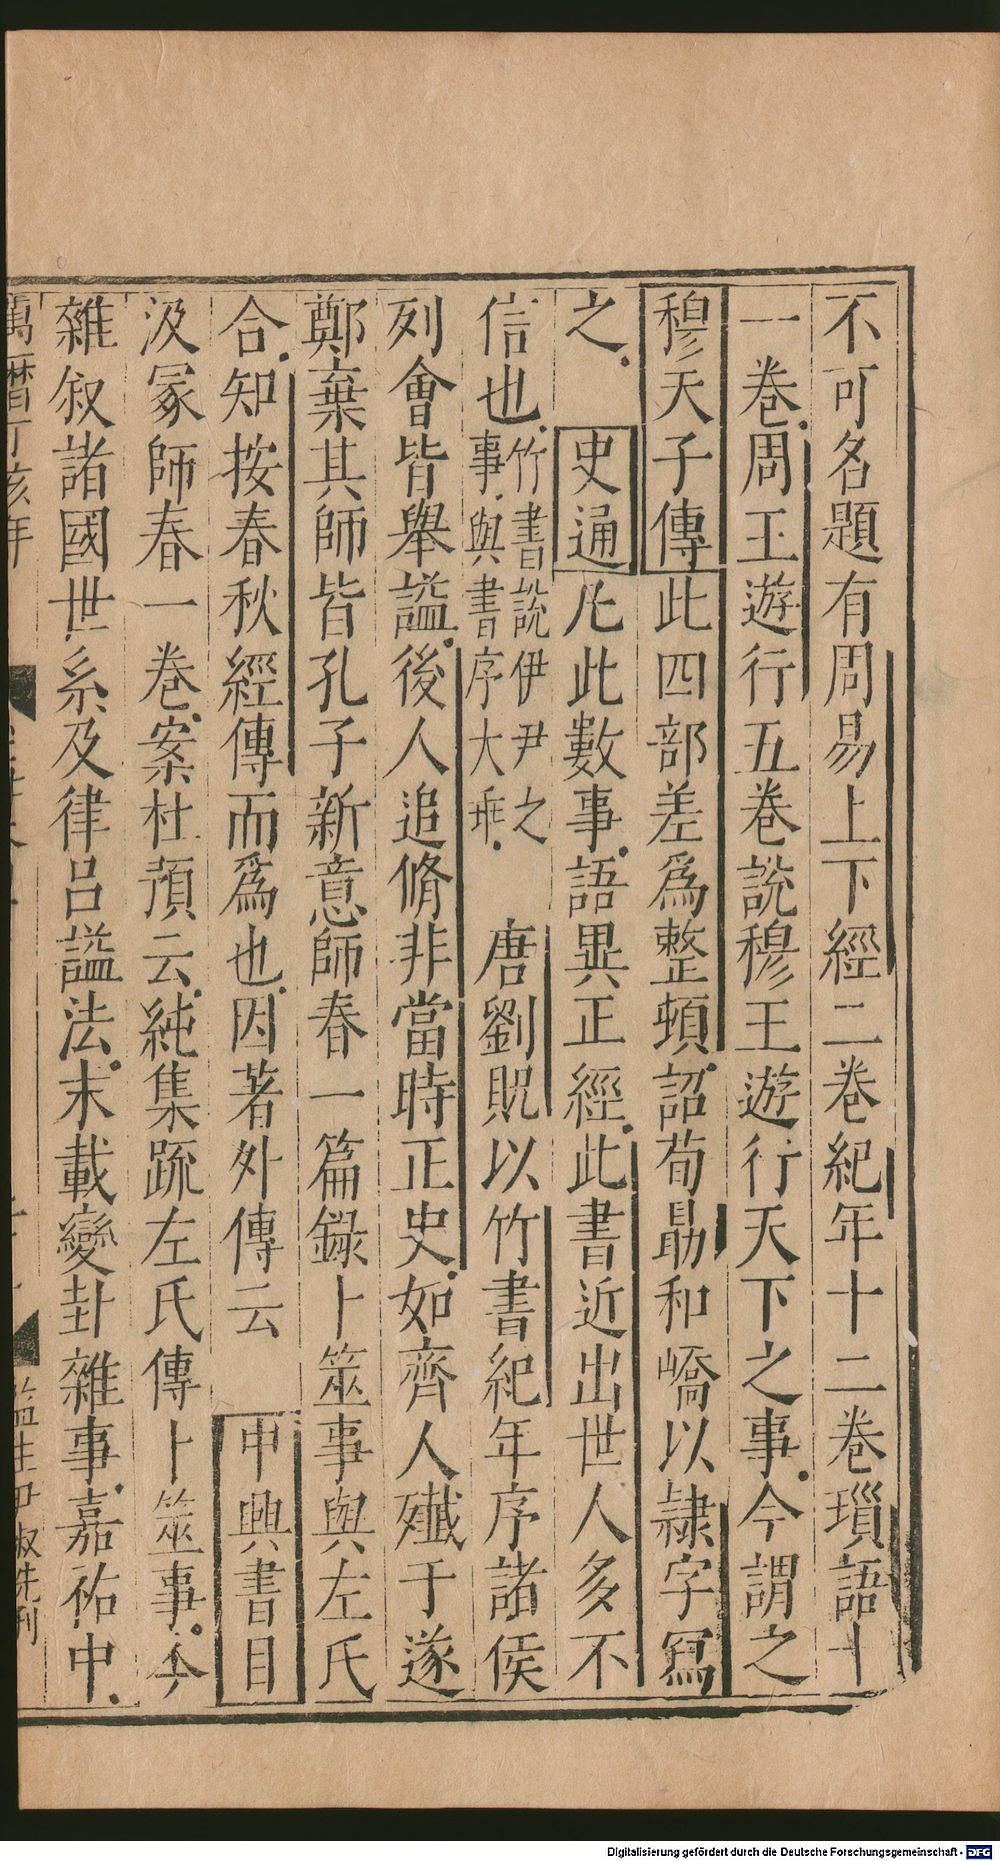 不可名題有周易上下經二巻紀年十二巻瑣語十
一巻周王遊行五巻說穆王遊行天下之事今謂之
穆天子傳此四部差爲整頓詔荀勗和嶠以隷字冩
之 史通凡此數事語異正經此書近出世人多不
信也竹書説伊尹之事與書序大乖 唐劉貺以竹書紀年序諸侯
列會皆舉謚後人追脩非當時正史如齊人殱于遂
鄭棄其師皆孔子新意師春一篇錄卜筮事與左氏
合知按春秋經傳而爲也因著外傳云 中興書目
汲冢師春一巻案杜預云純集疏左氏傳卜筮事今
雜叙諸國世系及律吕謚法末載變卦雜事嘉祐中
萬曆丁亥年
監生
刋
Digitalisierung gefördert durch die Deutsche Forschungsgemeinschaft - DFG